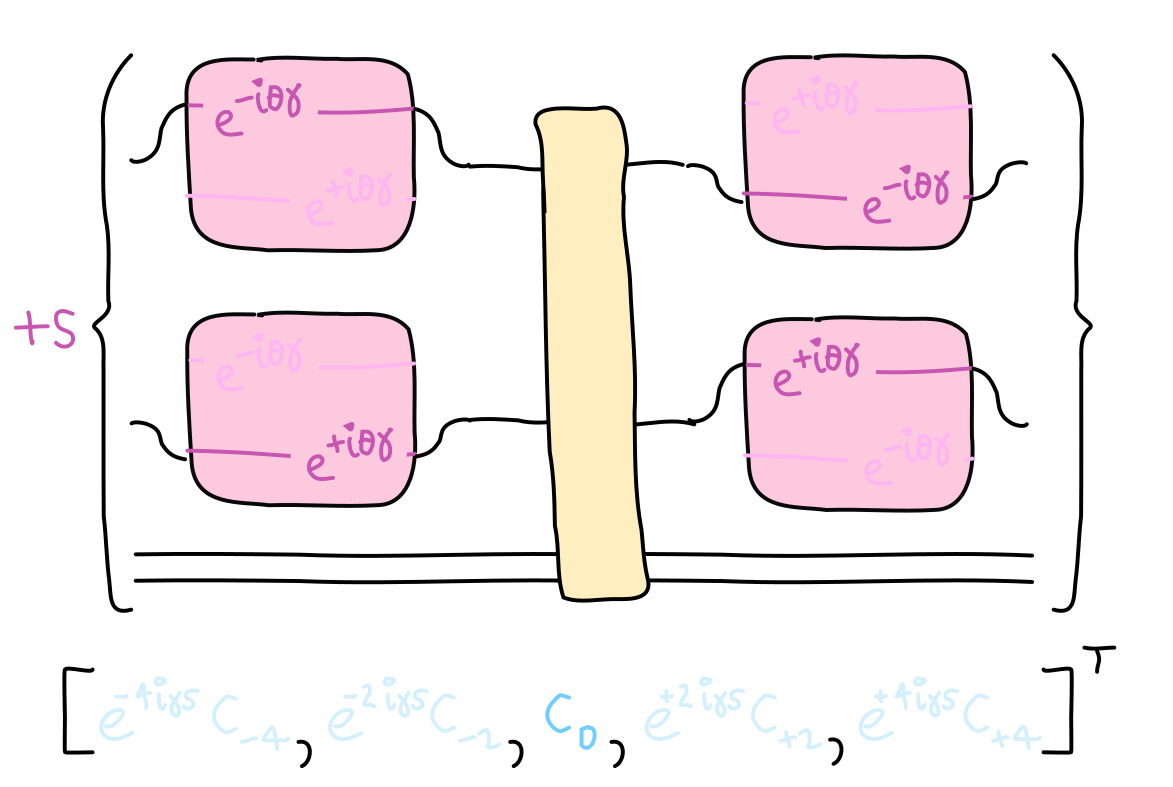 e^{-iθγ} e^{+iθγ}
e^{+iθγ} e^{-iθγ}
+s
e^{-iθγ} e^{+iθγ}
e^{+iθγ} e^{-iθγ}
[e^{-4iγs} C_{-4}, e^{-2iγs} C_{-2}, C_0, e^{+2iγs} C_{+2}, e^{+4iγs} C_{+4}]^T